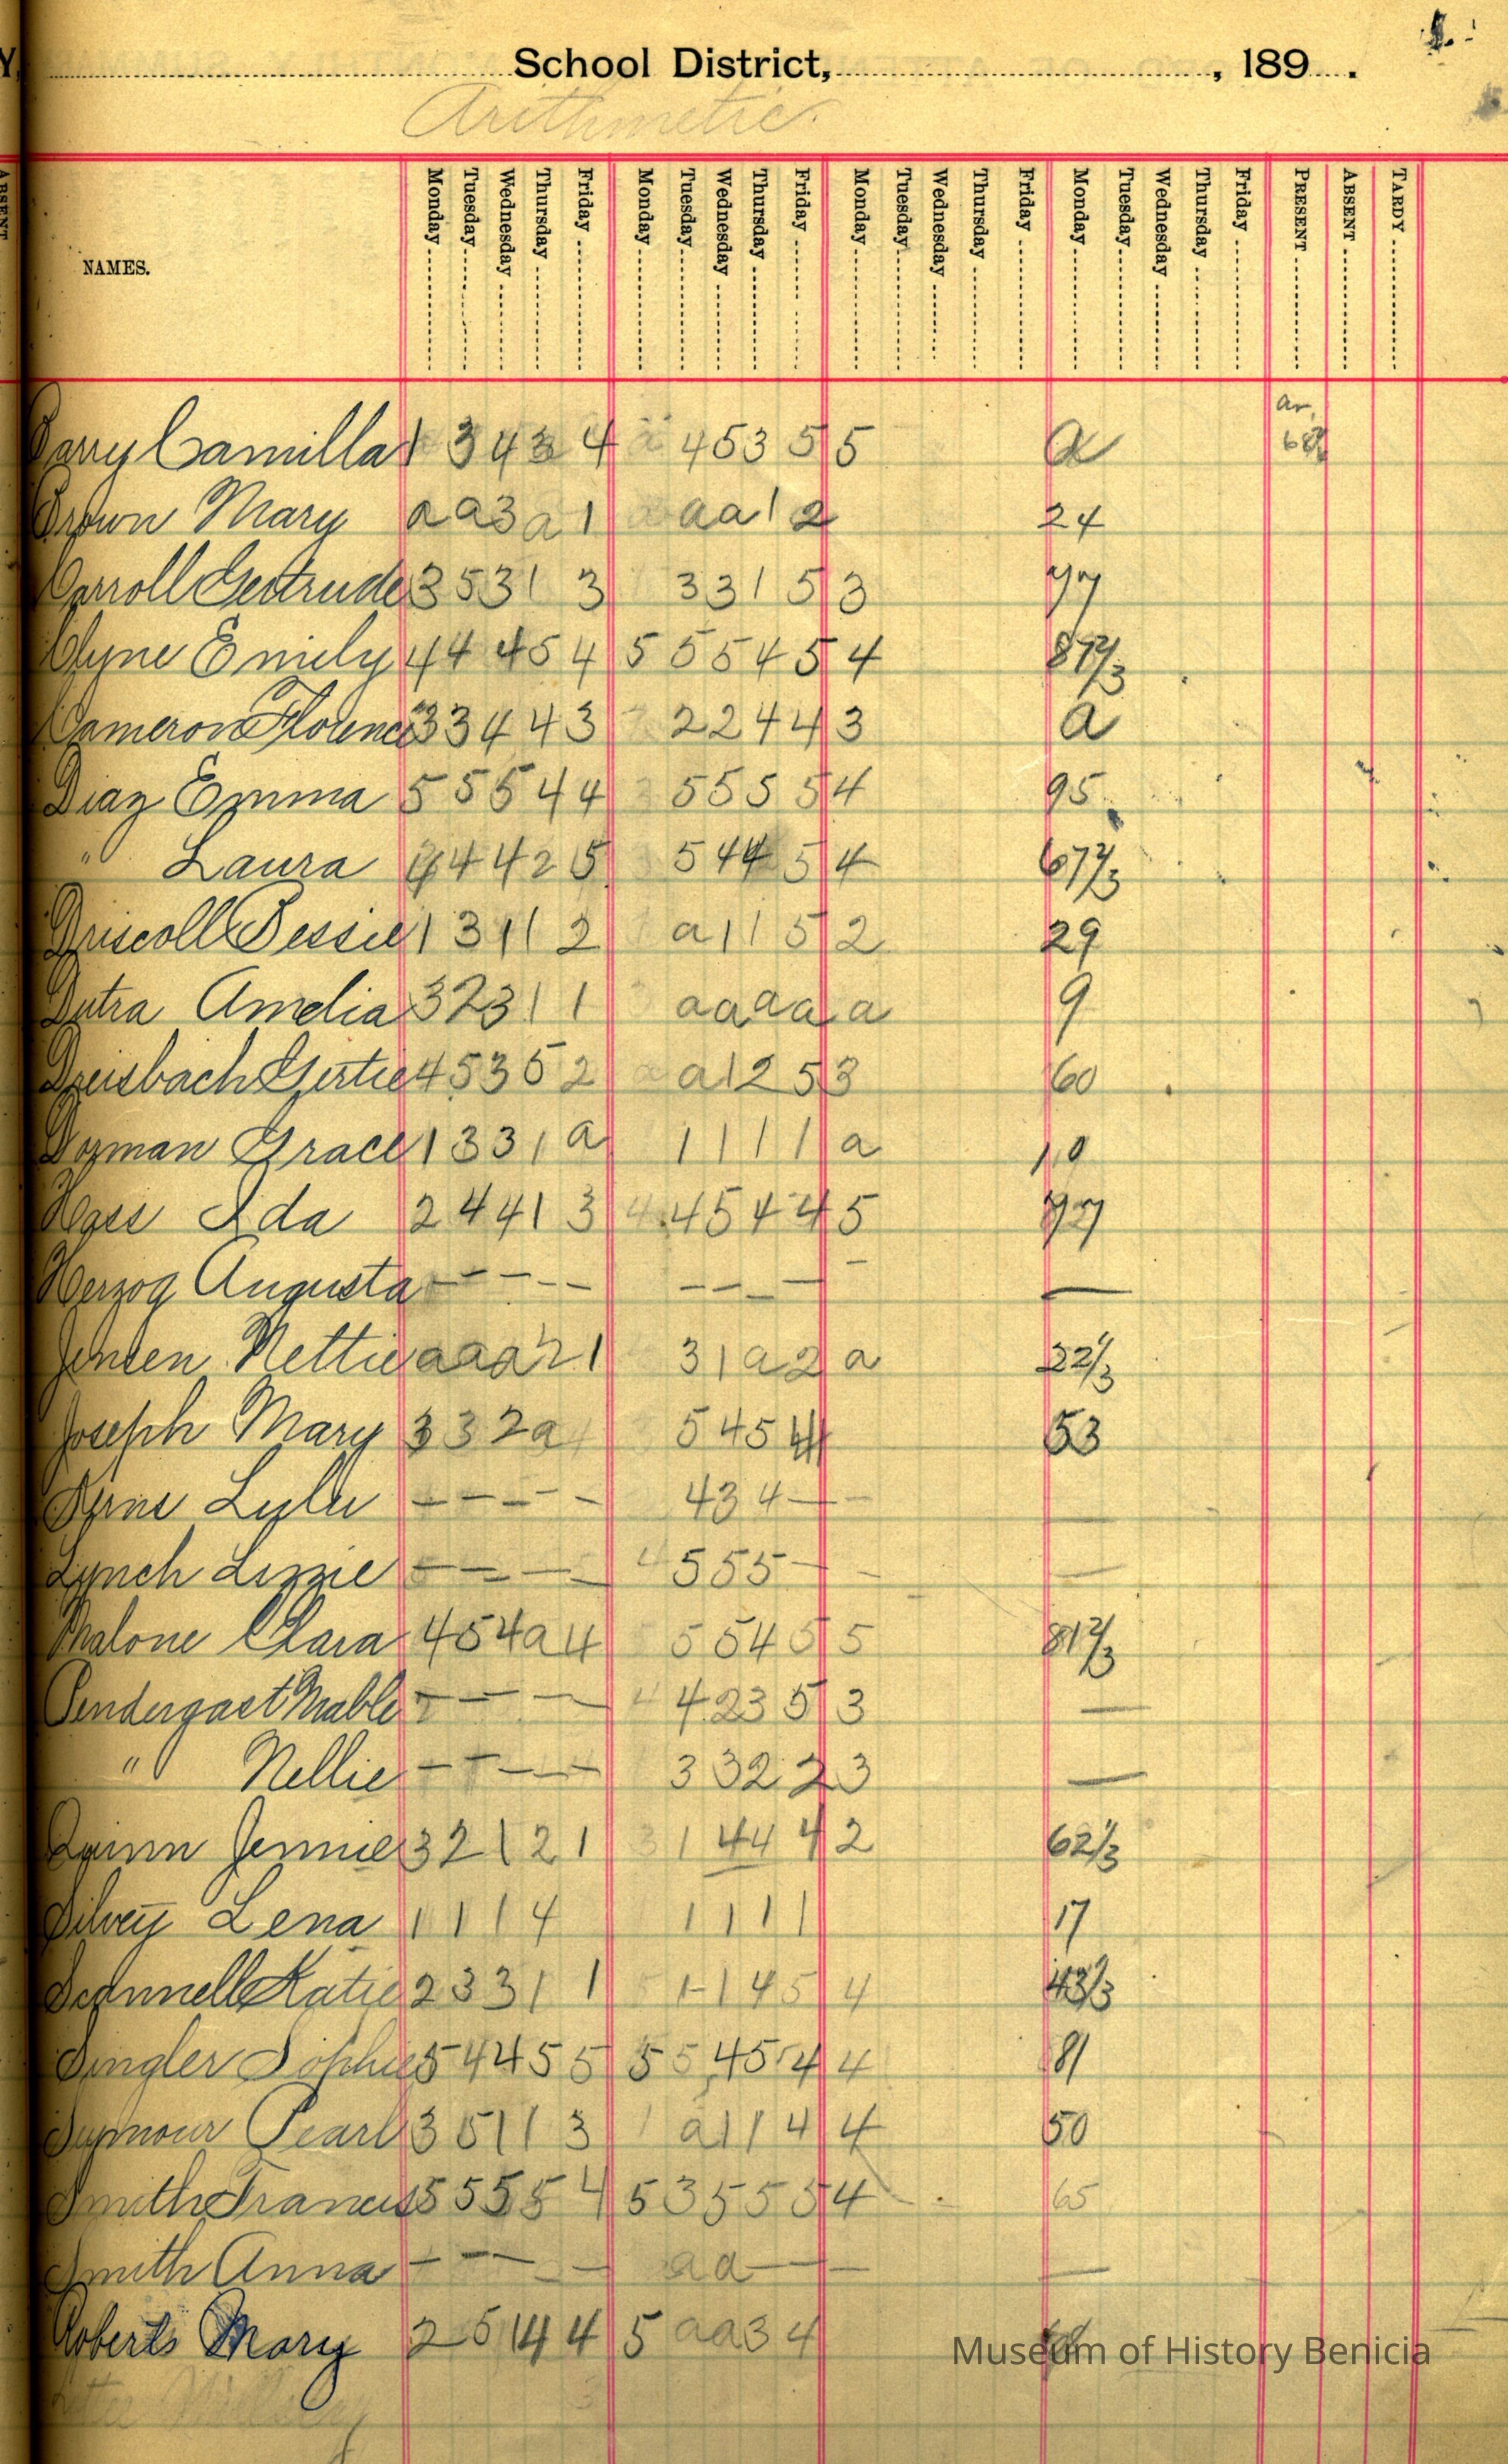 School District, , 189 .
Arithmetic.
NAMES.
Monday Tuesday Wednesday Thursday Friday Monday Tuesday Wednesday Thursday Friday Monday Tuesday Wednesday Thursday Friday Monday Tuesday Wednesday Thursday Friday PRESENT ABSENT TARDY
Camilla 1 3 4 3 4 4 5 3 5 5 a
Brown Mary a a 3 a 1 a a 1 2 24
Carroll Gertrude 3 5 3 1 3 3 3 1 5 3 77
Clyne Emily 4 4 4 5 4 5 5 5 4 5 4 87 2/3
Cameron Florence 3 3 4 4 3 2 2 4 4 3 a
Diaz Emma 5 5 5 4 4 5 5 5 5 4 95
" Laura 4 4 4 2 5 5 4 4 5 4 67 2/3
Driscoll Bessie 1 3 1 1 2 a 1 1 5 2 29
Dutra Amelia 3 2 3 1 1 a a a a a 9
Dreisbach Gertie 4 5 3 5 2 a 1 2 5 3 60
Grace 1 3 3 1 a 1 1 1 1 a 10
Hass Ida 2 4 4 1 3 4 4 5 4 4 5 77
Herzog Augusta - - - - - - - - - - —
Jensen Nettie a a a 2 1 3 1 a 2 a 22 1/3
Joseph Mary 3 3 2 a 5 4 5 4 53
Lulu - - - - - 4 3 4 - - —
Lynch Lizzie - - - - 4 5 5 5 - - —
Malone Clara 4 5 4 a 4 5 5 4 5 5 81 2/3
Pendergast Mable - - - 4 4 2 3 5 3 —
" Nellie - - - - 3 3 2 2 3 —
Quinn Jennie 3 2 1 2 1 3 1 4 4 4 2 62 1/3
Silvey Lena 1 1 1 4 1 1 1 1 17
Scannell Katie 2 3 3 1 1 1 - 1 4 5 4 43 1/3
Singler Sophie 5 4 4 5 5 5 5 4 5 4 4 81
Seymour Pearl 3 5 1 1 3 1 a 1 1 4 4 50
Smith Francis 5 5 5 5 4 5 3 5 5 5 4 65
Smith Anna - - - - a a - - —
Roberts Mary 2 5 1 4 4 4 5 a a 3 4
Museum of History Benicia